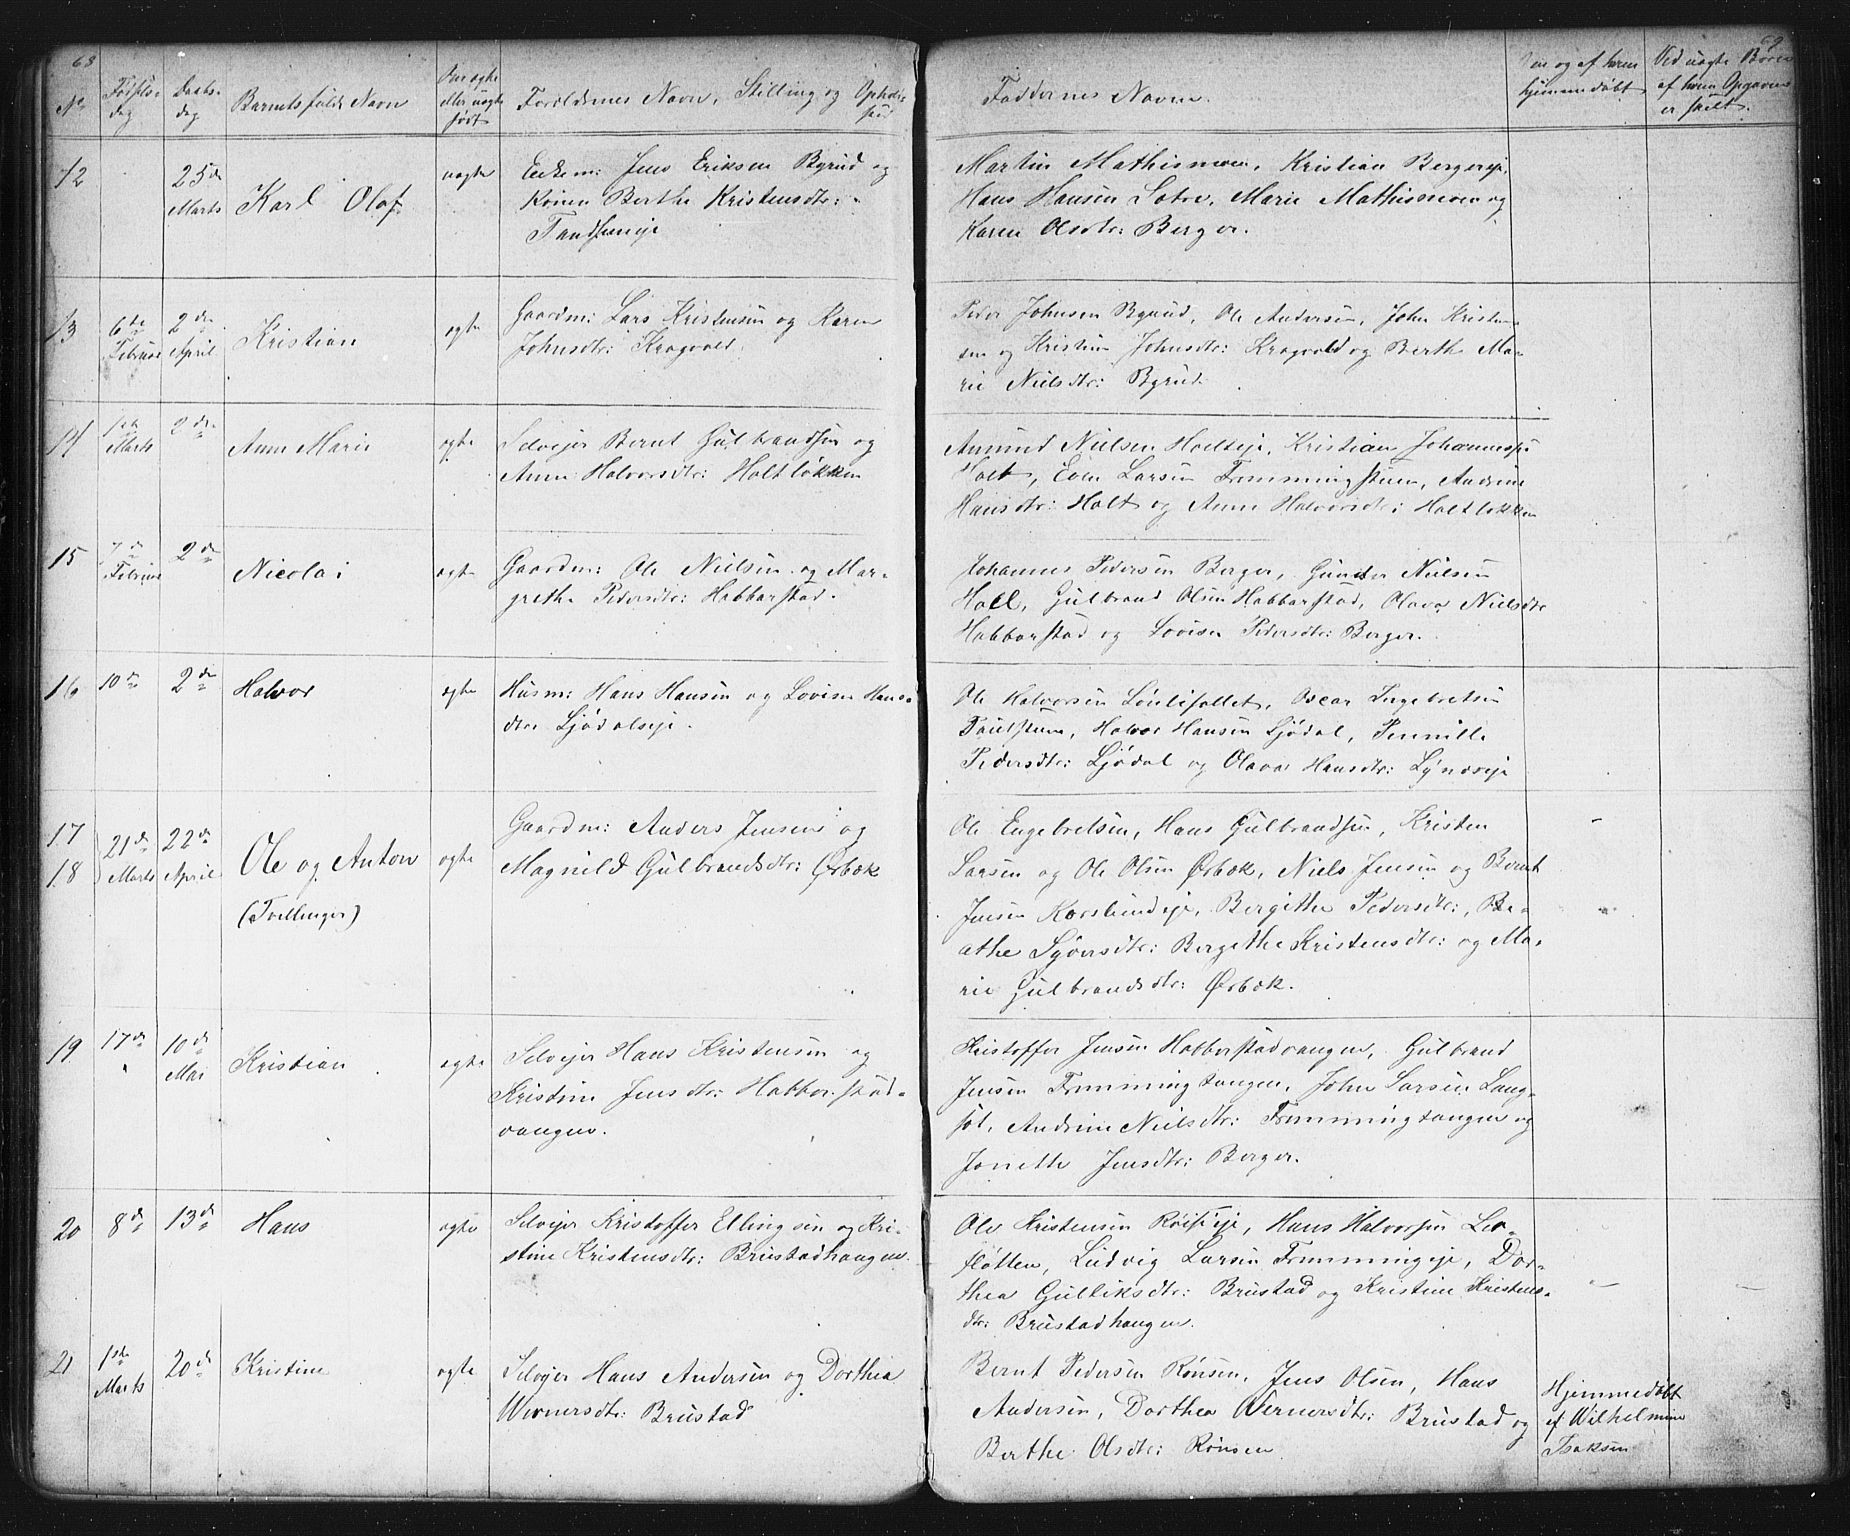 68
No Fødsels-dag Daabs-dag Barnets fulde Navn Om ægte eller uægte født Forældrenes Navn, Stilling og Opholds-
Faddernes Navne. og af hvem hjemmedøbt Ved uægte Børn af hvem Opgaven er skeet.
69
12 25de Marts Karl Olaf uægte Enkem: Jens Eriksen Byrud og
Konen Berthe Kristensdtr:
Martin Mathismoen, Kristian Bergereje,
Hans Hansen Sætre, Marie Mathismoen og
Karen Olsdtr: Berger.
13 6te Februar 2den April Kristian ægte Gaardm: Lars Kristensen og Karen
Johnsdtr: Kragvold.
Peder Johnsen Byrud, Ole Andersen, John Kristen-
sen og Kristine Johnsdtr: Kragvold og Berthe Ma-
rie Nielsdtr: Byrud.
14 1ste Marts 2den Anne Marie ægte Selvejer Bernt Gulbrandsen og
Anne Halvorsdtr: Holtløkken
Amund Nielsen Holteje, Kristian Johannessen
Holt, Even Larsen Fremmingstuen, Andrine
Hansdtr: Holt og Anne Halvorsdtr: Holtløkken
15 7de Februar 2den Nicolai ægte Gaardm: Ole Nielsen og Mar-
grethe Pedersdtr: Habberstad.
Johannes Pedersen Berger, Gunder Nielsen
Holl, Gulbrand Olsen Habberstad, Olava Nielsdtr
Habberstad og Lovise Pedersdtr: Berger.
16 10de 2den Halvor ægte Husm: Hans Hansen og Lovise Hans-
dtr Ljødalseje.
Ole Halvorsen, Oscar Ingebretsen
Halvor Hansen Ljødal, Pernille
Pedersdtr: Ljødal og Olava Hansdtr:
17
18 21de Marts 22de April Ole og Anton ægte Gaardm: Anders Jensen og
(Tvillinger) Magnild Gulbrandsdtr: Ørbæk
Ole Engebretsen, Hans Gulbrandsen, Kristen
Larsen og Ole Olsen Ørbæk, Niels Jensen og Bernt
Jensen Korslundeje, Bergithe Pedersdtr:, Be-
athe Syversdtr: Bergithe Kristensdtr: og Ma-
rie Gulbrandsdtr: Ørbæk.
19 17de " 10de Mai Kristian ægte Selvejer Hans Kristensen og
Kristine Jensdtr: Habberstad-
vangen.
Kristoffer Jensen Habberstadvangen, Gulbrand
Jensen Fremmingvangen, John Larsen Lang-
søt, Andrine Nielsdtr: Fremmingvangen og
Jonette Jensdtr: Berger.
20 8de 13de Hans ægte Selvejer Kristoffer Ellingsen og Kri-
stine Kristensdtr: Brustadhaugen.
Ole Kristensen Røiseje, Hans Halvorsen Ler-
fløtten, Ludvig Larsen Fremmingeje, Dor-
thea Gulliksdtr: Brustad og Kristine Kristens-
dtr: Brustadhaugen.
21 1ste Marts 20de Kristine ægte Selvejer Hans Andersen og Dorthea
Wernersdtr: Brustad
Bernt Pedersen Rønsen, Jens Olsen, Hans
Andersen, Dorthea Wernersdtr: Brustad og
Berthe Olsdtr: Rønsen
Hjemmedøbt
af Wilhelmine
Isaksen